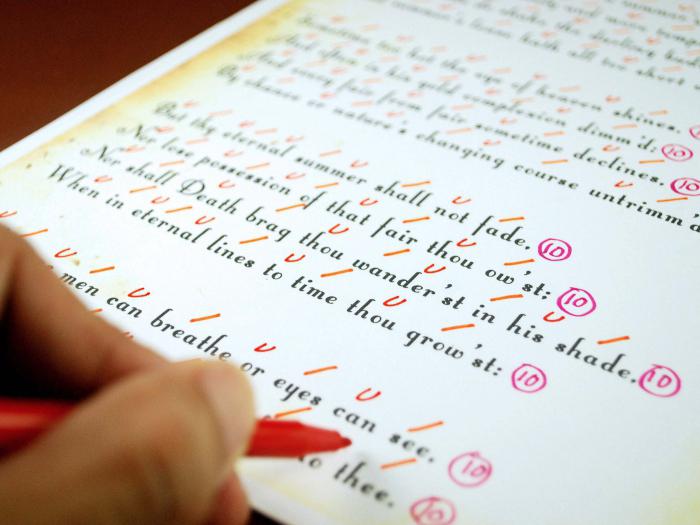 and more
do shake the darling
summer's lease hath all too short
Sometime too hot the eye of heaven shines,
And often is his gold complexion dimm'd; 10
And every fair from fair sometime declines, 10
By chance or nature's changing course untrimm'd
But thy eternal summer shall not fade, 10
Nor lose possession of that fair thou ow'st; 10
Nor shall Death brag thou wander'st in his shade, 10
When in eternal lines to time thou grow'st: 10
men can breathe or eyes can see, 10
to thee. 10